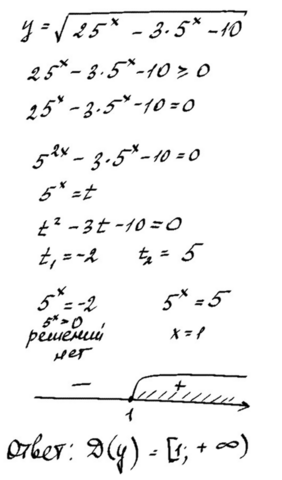 y = √(25ˣ - 3·5ˣ - 10)
25ˣ - 3·5ˣ - 10 ≥ 0
25ˣ - 3·5ˣ - 10 = 0
5²ˣ - 3·5ˣ - 10 = 0
5ˣ = t
t² - 3t - 10 = 0
t₁ = -2 t₂ = 5
5ˣ = -2 5ˣ = 5
5ˣ > 0,
решений x = 1
нет
- +
1
Ответ: D(y) = [1; + ∞)